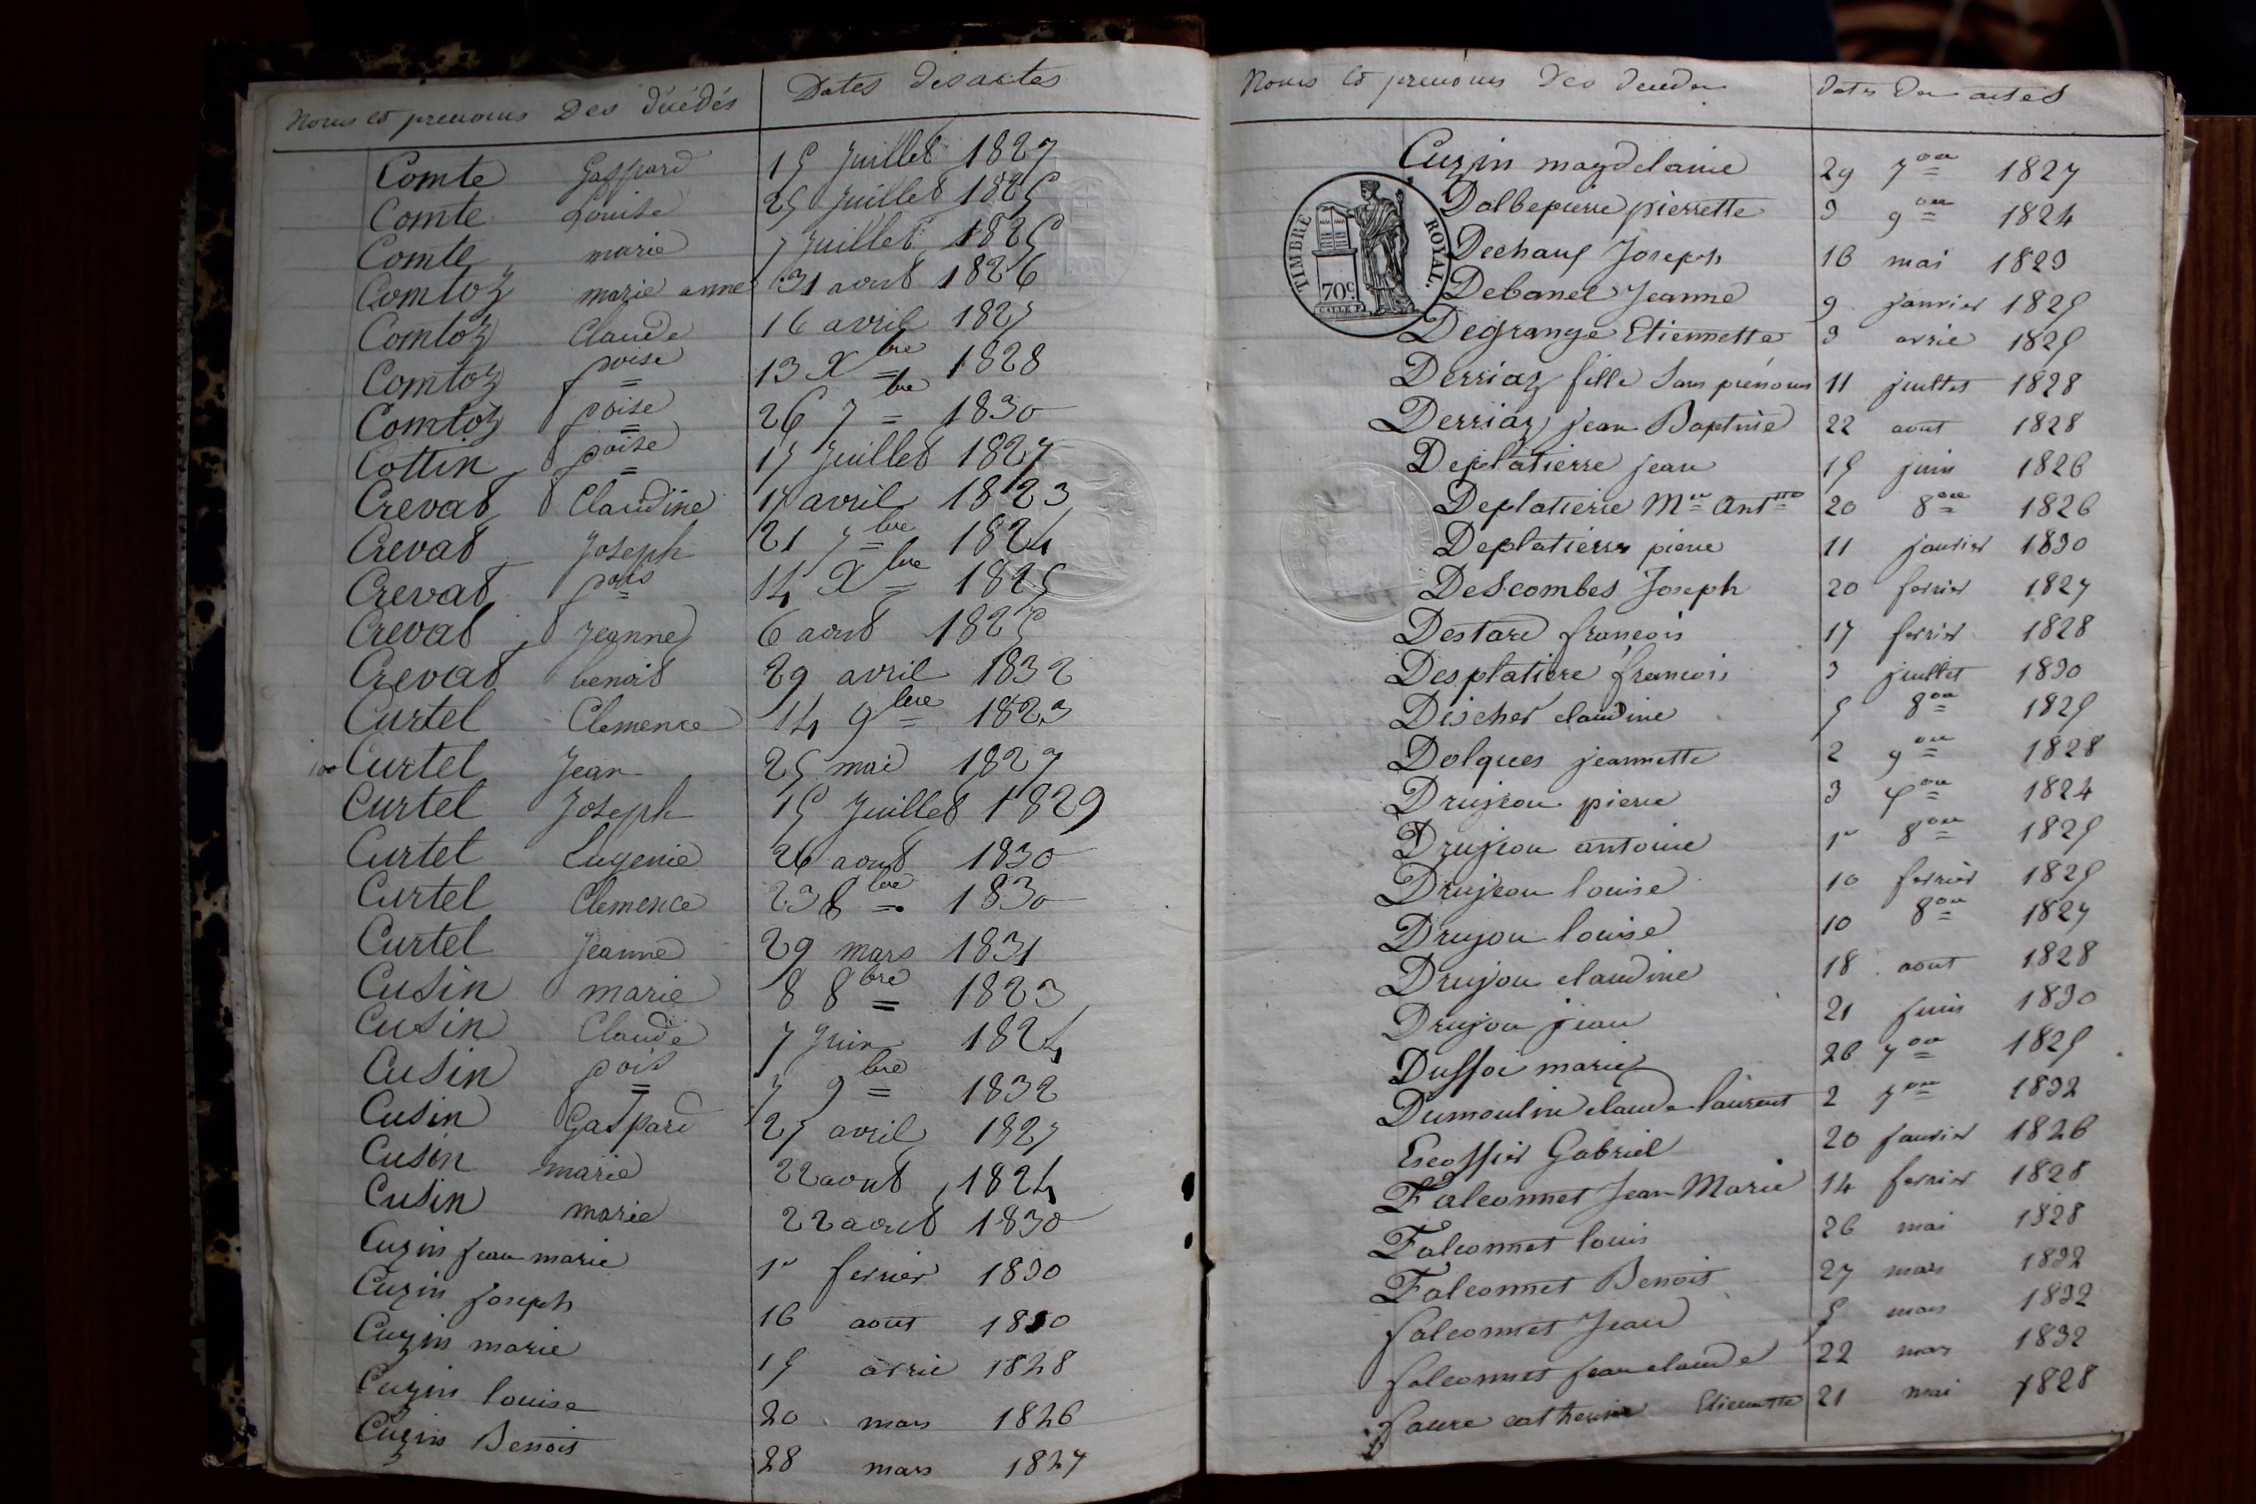 Noms et prenoms Des Décédés Dates des actes
Comte Gaspard 15 Juillet 1827
Comte Louise 25 Juillet 1825
Comte marie 7 Juillet 1825
Comtoz marie anne 31 aout 1826
Comtoz Claude 16 avril 1827
Comtoz fçoise 13 Xbre 1828
Comtoz fçoise 26 7bre 1830
Cottin fçoise 17 Juillet 1827
Crevat Claudine 17 avril 1823
Crevat Joseph 21 7bre 1824
Crevat fçois 14 Xbre 1825
Crevat Jeanne 6 aout 1825
Crevat benoit 29 avril 1832
Curtel Clemence 14 9bre 1823
100 Curtel Jean 25 mai 1827
Curtel Joseph 15 Juillet 1829
Curtet Eugenie 26 aout 1830
Curtel Clemence 23 8bre 1830
Curtel Jeanne 29 mars 1831
Cusin marie 8 8bre 1823
Cusin Claude 7 Juin 1824
Cusin fçois 7 9bre 1832
Cusin Gaspard 27 avril 1827
Cusin marie 22 aout 1824
Cusin marie 22 aout 1830
Cuzin jean marie 1er fevrier 1830
Cuzin joseph 16 aout 1830
Cuzin marie 15 avril 1828
Cuzin louise 20 mars 1826
Cuzin Benoit 28 mars 1827
Noms et prenoms des decedes dates des actes
Cuzin magdelaine 29 7bre 1827
TIMBRE ROYAL.
70c.
Dalbepierre pierrette 3 9bre 1824
Dechaux Joseph 16 mai 1829
Debanet Jeanne 9 janvier 1825
Degrange Etiennette 3 avril 1825
Derriaz fille sans prénoms 11 juillet 1828
Derriaz jean Baptiste 22 aout 1828
Deplatierre jean 15 juin 1826
Deplatierre Mie Anttte 20 8bre 1826
Deplatierre pierre 11 janvier 1830
Descombes Joseph 20 fevrier 1827
Destard françois 17 fevrier 1828
Desplatiere francois 3 juillet 1830
Discher claudine 5 8bre 1825
Dolques jeannette 2 9bre 1828
Drujeou pierre 3 7bre 1824
Drujeou antoine 1er 8bre 1825
Drujeou louise 10 fevrier 1825
Drujou louise 10 8bre 1827
Drujou claudine 18 aout 1828
Drujou jean 21 juin 1830
Duffoi marie 26 7bre 1825
Dumoulin claude laurent 2 7bre 1832
Escoffier Gabriel 20 janvier 1826
Falconnet Jean Marie 14 fevrier 1828
Falconnet louis 26 mai 1828
Falconnet Benoit 27 mars 1832
falconnet Jean 5 mars 1832
falconnet jean claude 22 mars 1832
faure catherine Etiennette 21 mai 1828